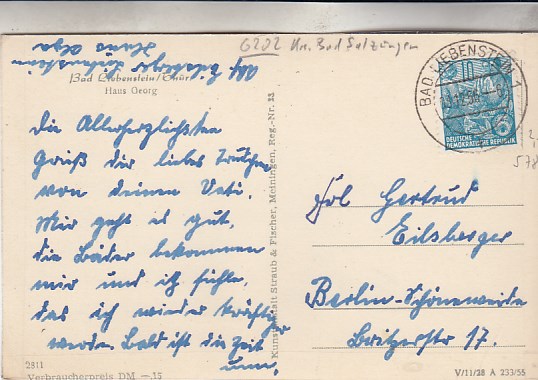 Haus Olga
Abs.
Bad Liebenstein/Thür.
Haus Georg
G202 Krs. Bad Salzungen
BAD LIEBENSTEIN
10
DEUTSCHE
DEMOKRATISCHE REPUBLIK
578
Die Allerherzlichsten
Grüß dir liebes Trudchen
von deinen Vati.
Mir geht es gut,
die Bäder bekommen
mir und ich fühle,
das ich wieder kräftiger
werde. Bald ist die Zeit
um.
Kunstanstalt Straub & Fischer, Meiningen, Reg.-Nr. 33
Frl Gertrud
Eilsberger
Berlin-Schöneweide
Britzerstr 17.
2811
Verbraucherpreis DM -.15
V/11/28 A 233/55